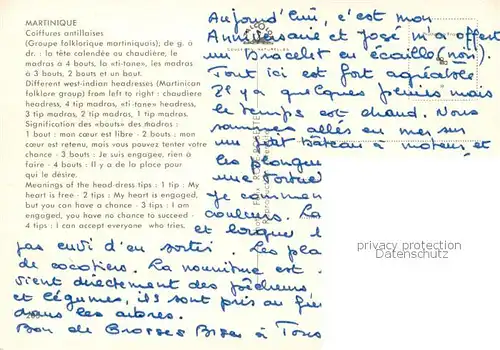 MARTINIQUE
Coiffures antillaises
(Groupe folklorique martiniquais); de g. à
dr. : la tête calendée ou chaudière, le
madras à 4 bouts, la «ti-tane», les madras
à 3 bouts, 2 bouts et un bout.
Different west-indian headresses (Martinican
folklore group) from left to right : chaudiere
headress, 4 tip madras, «ti-tane» headress,
3 tip madras, 2 tip madras, 1 tip madras.
Signification des «bouts» des madras :
1 bout : mon cœur est libre - 2 bouts : mon
cœur est retenu, mais vous pouvez tenter votre
chance - 3 bouts : Je suis engagée, rien à
faire - 4 bouts : Il y a de la place pour
qui le désire.
Meanings of the head-dress tips : 1 tip : My
heart is free - 2 tips : My heart is engaged,
but you can have a chance - 3 tips : I am
engaged, you have no chance to succeed -
4 tips : I can accept everyone who tries.
Aujourd'hui, c'est mon
Anniversaire et José m'a offert
un Bracelet en écaille (noir).
Tout ici est fort agréable
Il y a quelques pluies mais
le temps est chaud. Nous
sommes allés en mer sur
un petit bateau à moteur, et
les plongeu
une tortue
Je commen
couleurs. La
et lorsque l
pas envi d'en sortir. Les pla
de cocotiers. La nourriture est
vient directement des pêcheurs
et légumes, ils sont pris au fur
dans les arbres.
Bon de Grosses Bises à Tous
privacy protection
Datenschutz